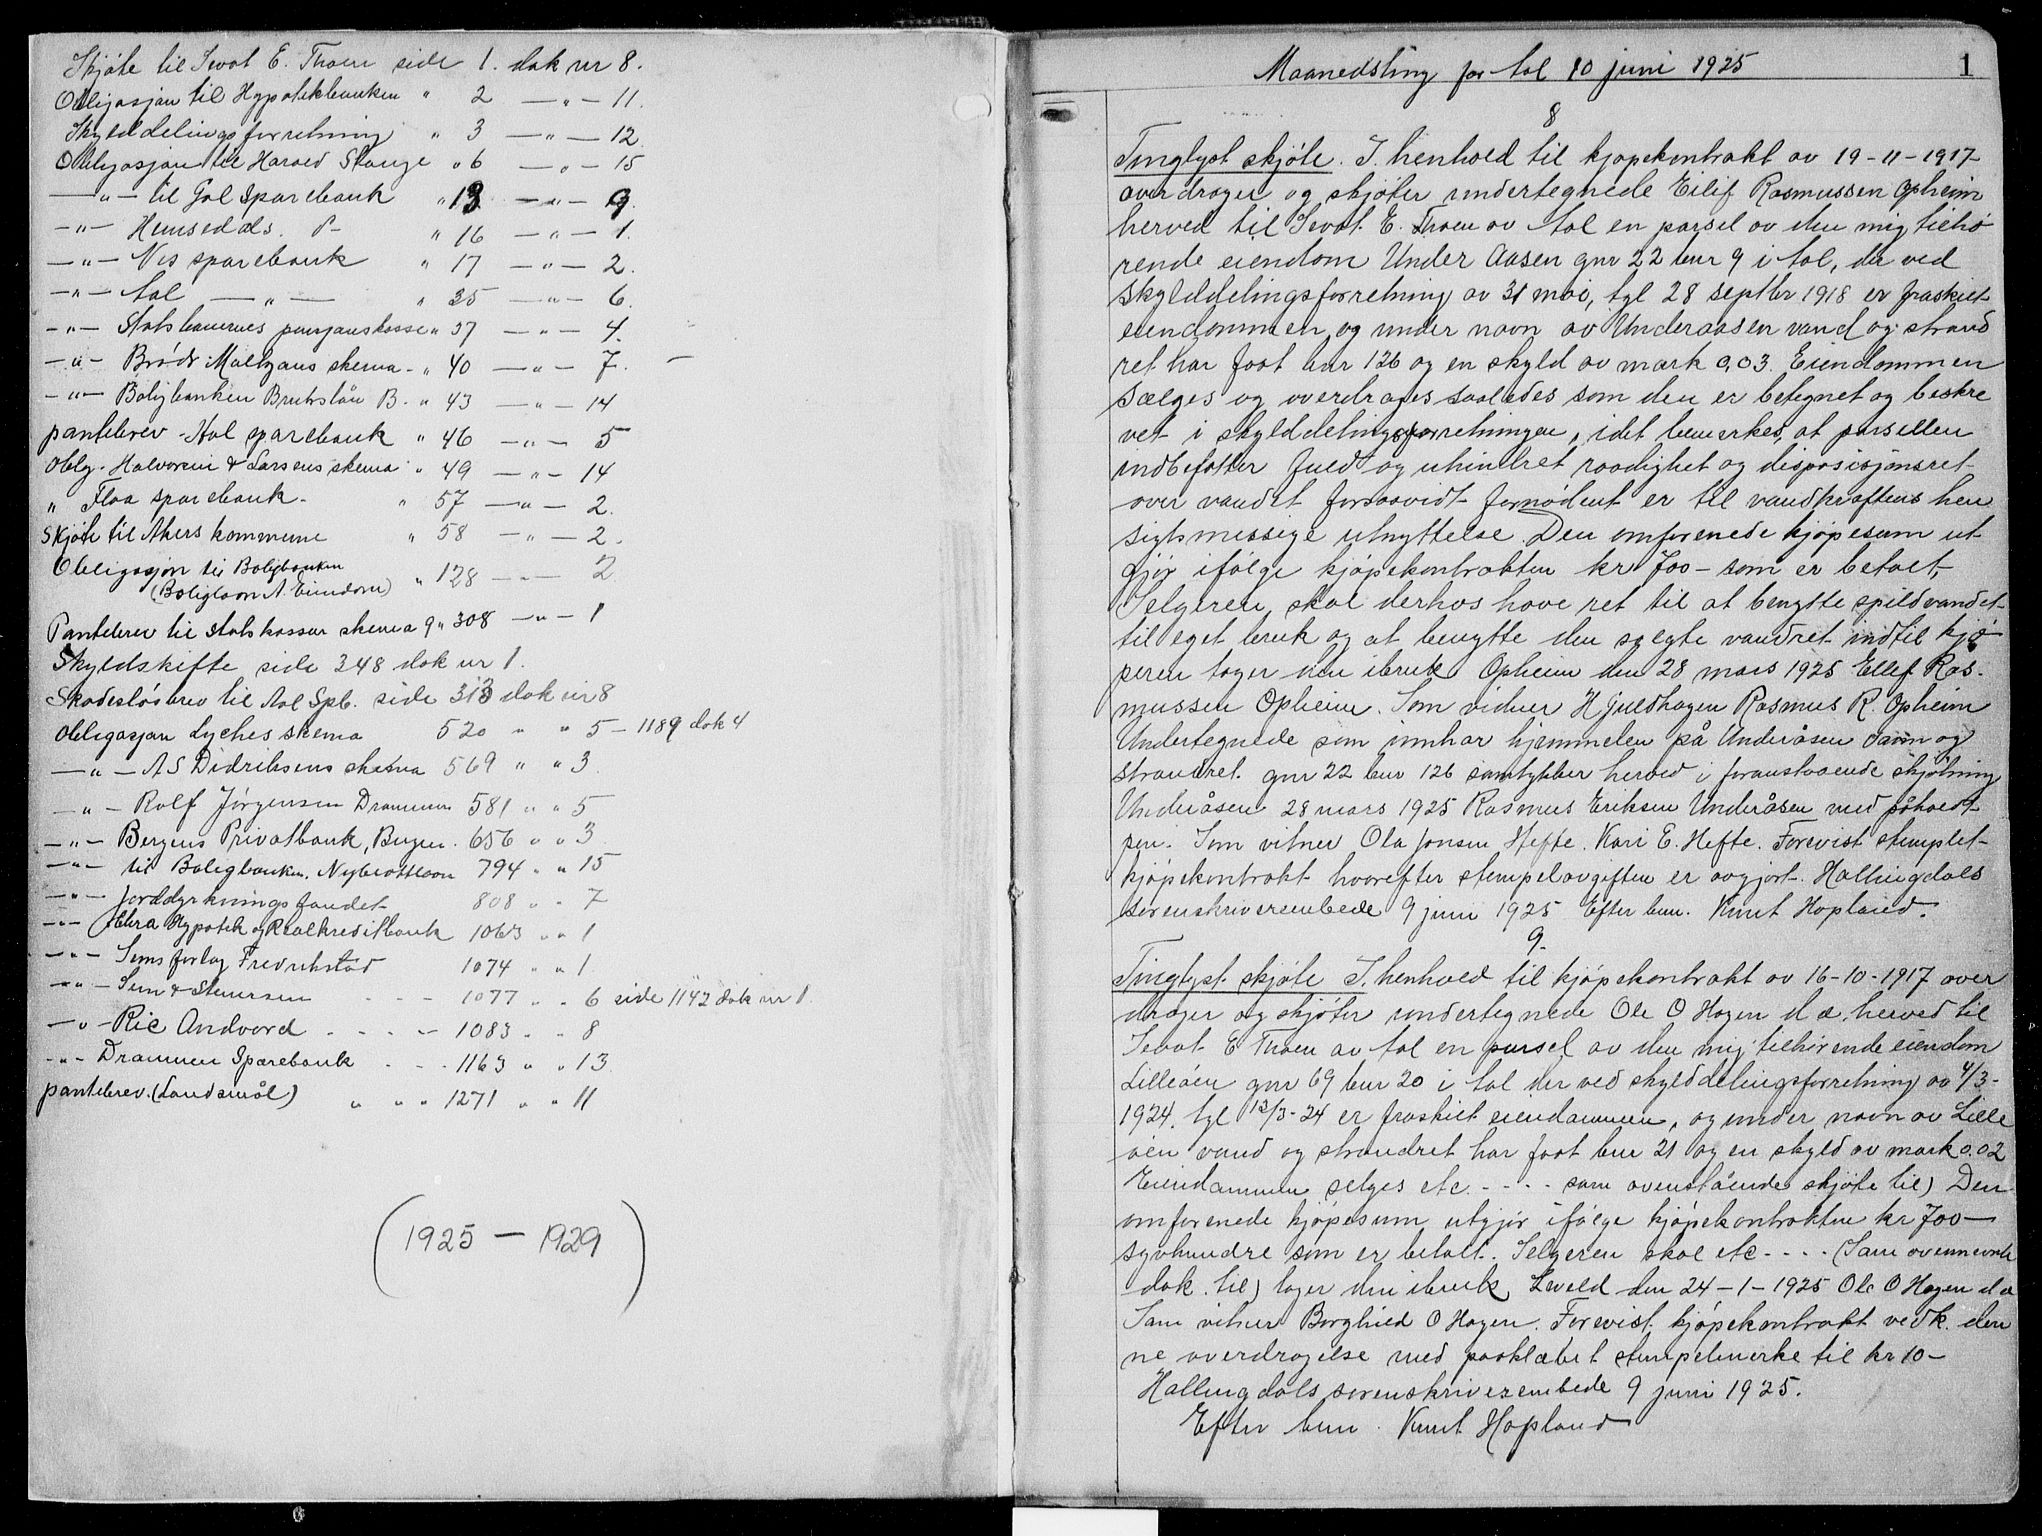 Skjøte til Sevat E. Thoen side 1. dok nr 8.
Obligasjon til Hypotekbanken " 2 — " — 11.
Skylddelingsforretning " 3 — " — 12
Obligasjon til Harald Stange " 6 — " — 15
— " — til Gol Sparebank " 13 — " — 9.
— " — Hemsedals. d- " 16 — " — 1.
— " — Nes sparebank " 17 — " — 2.
— " — Aal — " — " 35 — " — 6.
— " — Statsbanernes pensjonskasse " 37 — " — 4.
— " — Brødr Malbgans skema - " 40 — " — 7. —
— " — Boligbanken Brukslån B. " 43 — " — 14
pantebrev - Aal sparebank " 46 — " — 5
Oblg. Halvorsen & Larsens skema " 49 — " — 14
" Flaa sparebank. " 57 — " — 2.
Skjøte til Akers kommune " 58 — " — 2.
Obligasjon til Boligbanken
(Boliglaan A. Eiendom) " 128 — — 2
Pantebrev til statskassen skema 9 " 308 — " — 1
Skyldskifte side 248 dok nr 1.
Skadesløsbrev til Aal Spb. side 313 dok nr 8
Obligasjon Lyches skema 520 " " 5 — 1189 dok 4
— " — AS Didriksens skema 569 " " 3
— " — Rolf Jørgensen Drammen 581 " " 5
— " — Bergens Privatbank, Bergen. 656 " " 3
— " — til Boligbanken. Nybrottlaan 794 " " 15
— " — Jorddyrkningsfondet 808 " " 7
— " — Akers Hypotek og Realkreditbank 1063 " " 1
— " — Sems forlag Fredrikstad 1074 " " 1
— " — Sem & Stenersen - - - 1077 " " 6 side 1142 dok nr 1.
— " — Ric Andvord - - - - 1083 " " 8
— " — Drammen Sparebank - - - 1163 " " 13
pantebrev. (Landsmål) " " " 1271 " " 11
(1925 — 1929)
Maanedsting for Aal 10 juni 1925 1
8
Tinglyst skjøte. I henhold til kjøpekontrakt av 19-11-1917
overdrager og skjøter undertegnede Eilif Rasmussen Opheim
herved til Sevat E. Thoen av Aal en parsel av den mig tilhø
rende eiendom Under Aasen gnr 22 bnr 9 i Aal, da ved
skylddelingsforretning av 31 mai, tgl 28 septbr 1918 er fraskilt
eiendommen og under navn av Underaasen vand og strand
ret har faat bnr 126 og en skyld av mark 0,03. Eiendommen
sælges og overdrages saaledes som den er betegnet og beskre
vet i skylddelingsforretningen, idet bemerkes, at parsellen
indbefatter fuld og uhindret raadighet og disposisjonsret
over vandet forsaavidt fornødent er til vandkraftens hen
sigtsmessige utnyttelse. Den omforenede kjøpesum ut
gjør ifølge kjøpekontrakten kr 700 - som er betalt,
Selgeren skal derhos have ret til at benytte spildvandet
til eget bruk og at benytte den solgte vandret indtil kjø
peren tager den ibruk Opheim den 28 mars 1925 Ellef Ras-
mussen Opheim. Som vidner H Juldhagen Rasmus R. Opheim
Undertegnede som innhar hjemmelen på Underåsen vann og
strandret gnr 22 bnr 126 samtykker herved i foranstaaende skjøtning
Underåsen 28 mars 1925 Rasmus Eriksen Underåsen med påholdt
pen. Som vitner Ola Jonsen Hefte. Kari E. Hefte. Forevist stemplet
kjøpekontrakt hvorefter stempelavgiften er avgjort. Hallingdals
sorenskriverembede 9 juni 1925 Efter bem. Knut Hopland.
9.
Tinglyst skjøte I henhold til kjøpekontrakt av 16-10-1917 over
drager og skjøter undertegnede Ole O Hagen d æ. herved til
Sevat E Thoen av Aal en parsel av den mig tilhørende eiendom
Lilleøen gnr 69 bnr 20 i Aal der ved skylddelingsforretning av 4/3-
1924. tgl 12/3-24 er fraskilt eiendommen, og under navn av Lille
øen vand og strandret har faat bnr 21 og en skyld av mark 0.02
Eiendommen selges etc. - - - - som ovenstående skjøte til) Den
omforenede kjøpesum utgjør ifølge kjøpekontrakten kr 700 —
syvhundre som er betalt. Selgeren skal etc - - - - (Som ovennevnte
dok. til) tager den ibruk, Leveld den 24-1-1925 Ole O Hagen d æ
Som vitner Borghild O Hagen. Forevist kjøpekontrakt vedk. den
ne overdragelse med paaklæbet stempelmerke til kr 10 -
Hallingdals sorenskriverembede 9 juni 1925.
Efter bem. Knut Hopland